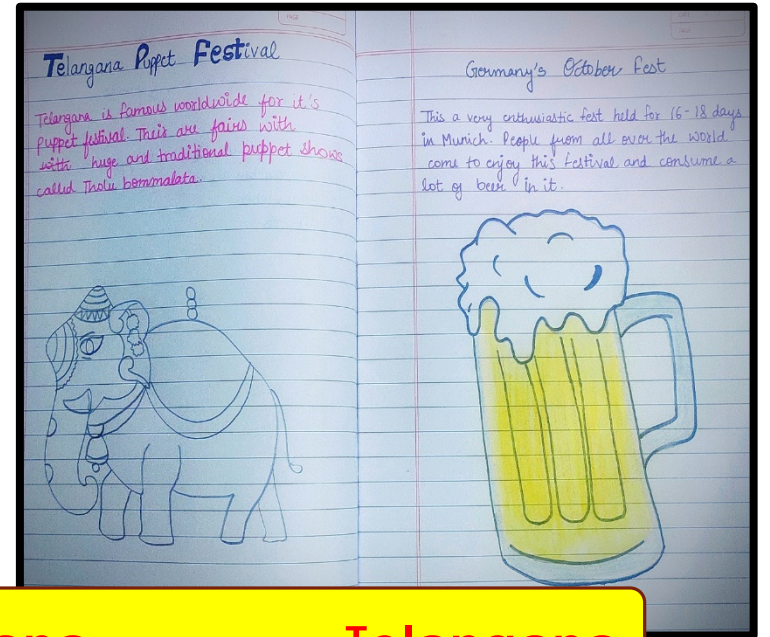 Telangana Puppet Festival
Telangana is famous worldwide for it's
Puppet festival. Their are fairs with
with huge and traditional puppet shows
called Tholu bommalata.
Germany's October Fest
This a very enthusiastic fest held for 16-18 days
in Munich. People from all over the world
come to enjoy this festival and consume a
lot of beer in it.
Telangana